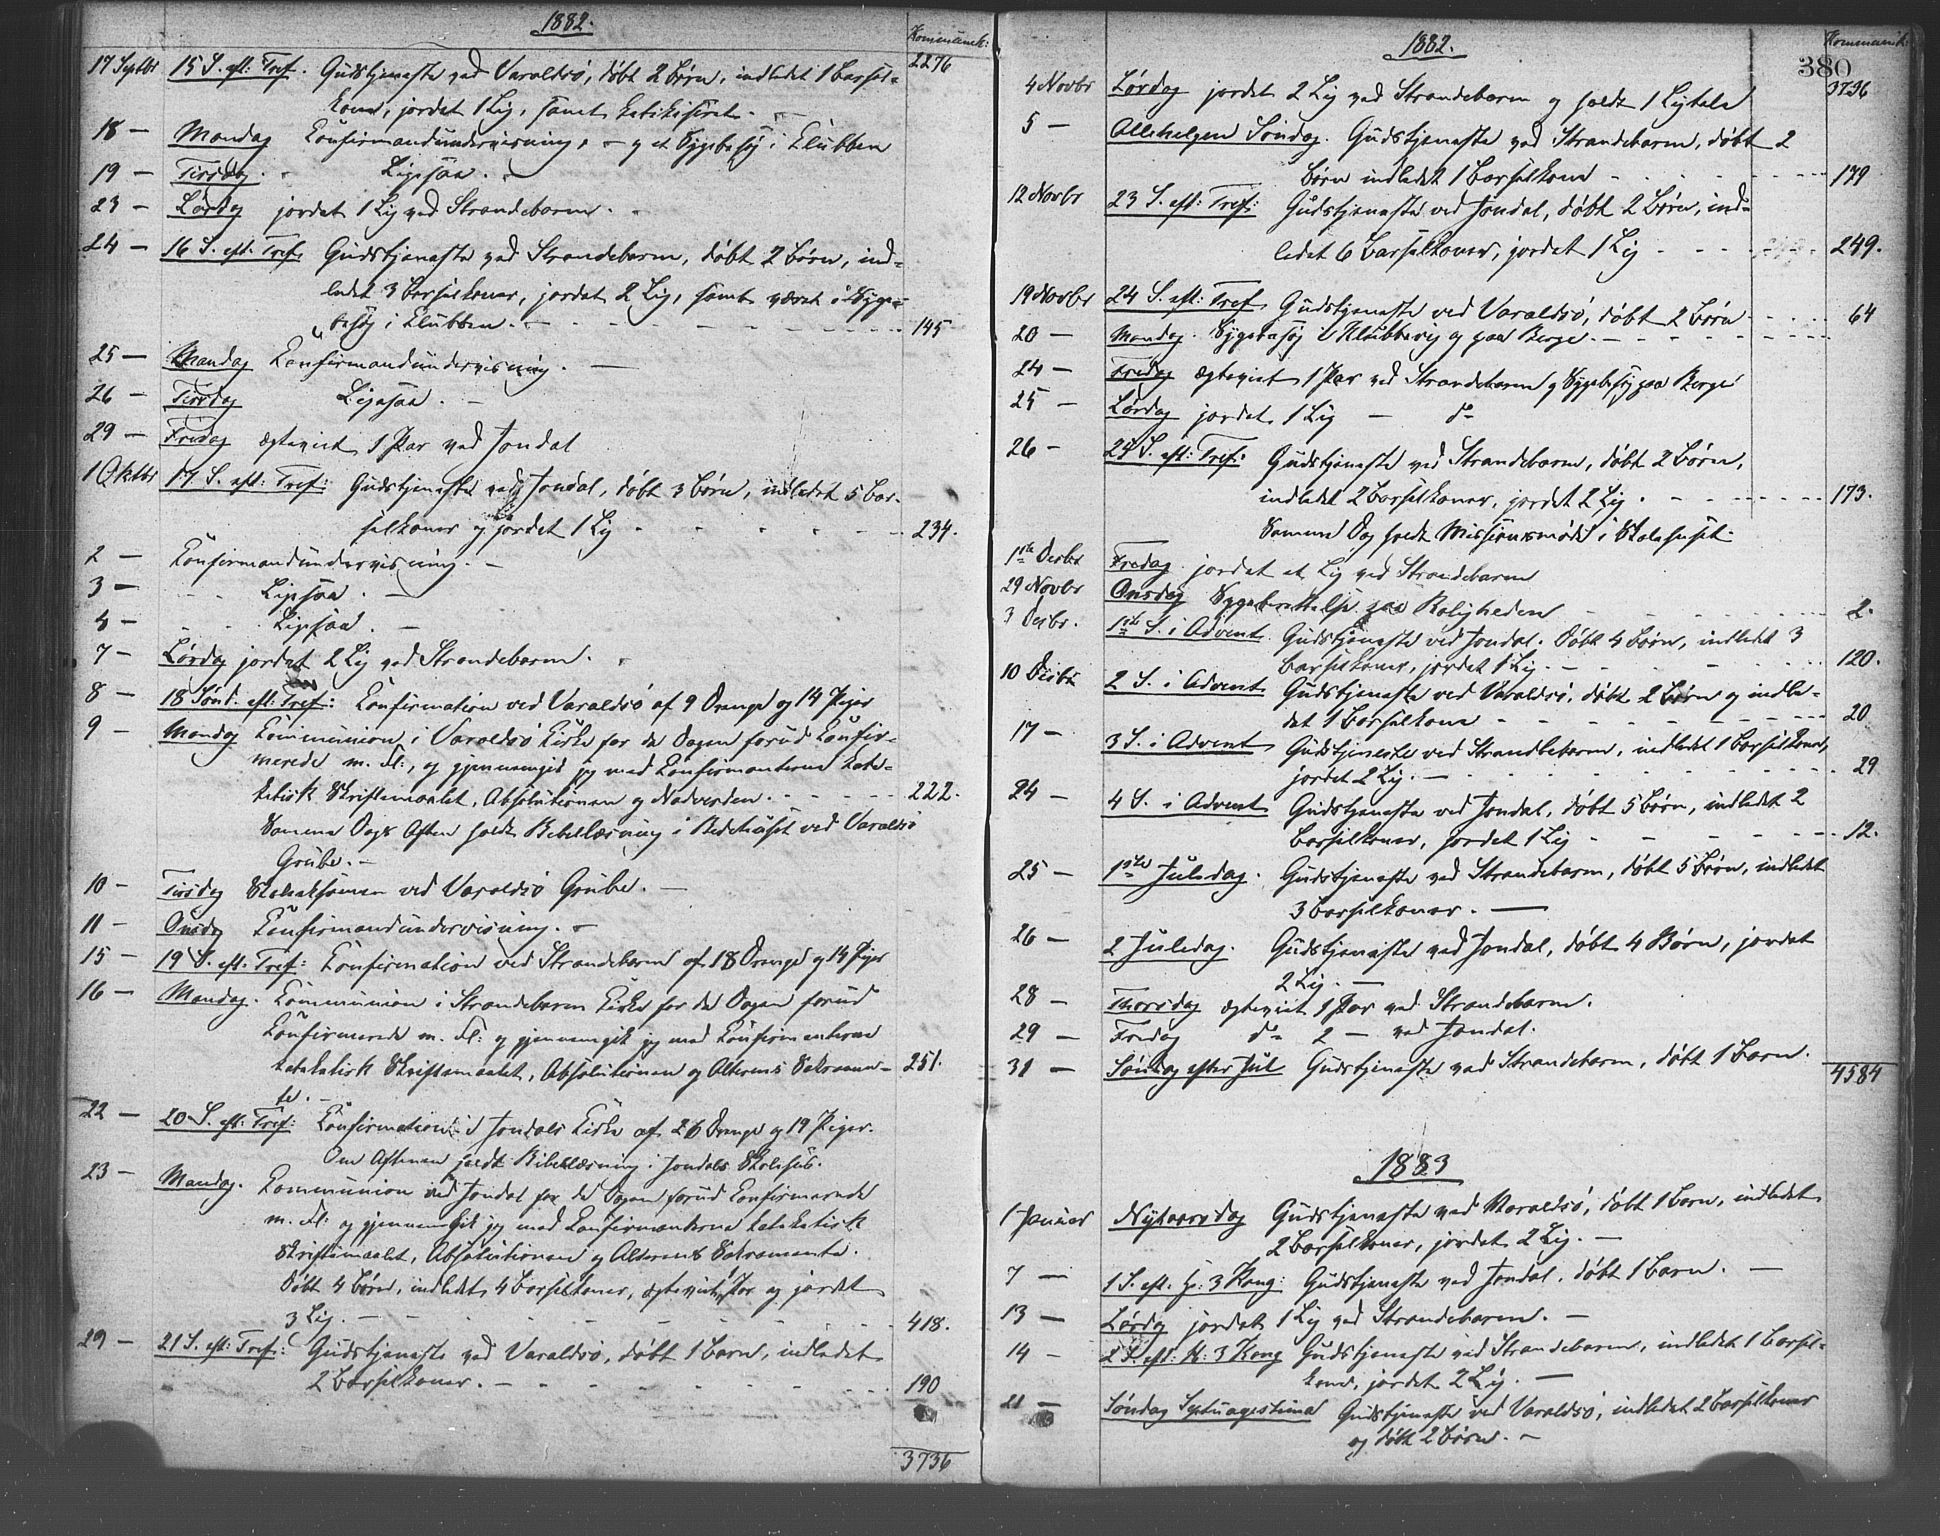 1882.
Kommunik:
17 Septbr 15 S. eft: Tref. Gudstjeneste ved Varaldsö, döbt 2 Börn, indledet 1 Barsel- 2276
kone, jordet 1 Lig, samt katekiseret. -
18 - Mandag Confirmandundervisning, - og et Sygebesög i Klubben
19 - Tirsdag. Ligesaa.
23 - Lördag jordet 1 Lig ved Strandebarm.
24 - 16 S. eft: Tref. Gudstjeneste ved Strandebarm, döbt 2 Börn, ind-
ledet 3 Barselkoner, jordet 2 Lig, samt været i Syge-
besög i Klubben. - 145
25 - Mandag Confirmandundervisning. -
26 - Tirsdag Ligesaa. -
29 - Fredag ægteviet 1 Par ved Jondal
1 Oktbr 17 S. eft: Tref: Gudstjeneste ved Jondal, döbt 3 Börn, indledet 5 Bar-
selkoner og jordet 1 Lig - 234.
2 - Confirmandundervisning. -
3 - Ligesaa. -
4 - Ligesaa. -
7 - Lördag jordet 2 Lig ved Strandebarm.
8 - 18 Sönd. eft: Tref: Confirmation ved Varaldsö af 9 Drenge og 14 Piger
9 - Mandag Communion i Varaldsö Kirke for de Dagen forud Confir-
merede m. Fl:, og gjennemgik jeg med Confirmanterne kate-
ketisk Skriftemaalet, Absolutionen og Nadverden. - 222.
Samme Dags Aften holdt Bibellæsning i Bedehuset ved Varaldsö
Grube. -
10 - Tirsdag Skoleeksamen ved Varaldsö Grube. -
11 - Onsdag Confirmandundervisning. -
15 - 19 S. eft: Tref: Confirmation ved Strandebarm af 18 Drenge og 14 Piger
16 - Mandag. Communion i Strandebarm Kirke for de Dagen forud
Confirmerede m. Fl: og gjennemgik jeg med Confirmanterne
kateketisk Skriftemaalet, Absolutionen og Alterens Sakramen- 251.
te. -
22 - 20 S. eft: Tref: Confirmation i Jondals Kirke af 26 Drenge og 19 Piger.
Om Aftenen holdt Bibellæsning i Jondals Skolehus.
23 - Mandag. Communion ved Jondal for de Dagen forud Confirmerede
m. Fl: og gjennemgik jeg med Confirmanterne kateketisk
Skriftemaalet, Absolutionen og Alterens Sakramente.
Döbt 4 Börn, indledet 4 Barselkoner, ægteviet Par og jordet
3 Lig. - 418.
29 - 21 S. eft: Tref: Gudstjeneste ved Varaldsö, döbt 1 Barn, indledet
2 Barselkoner. - 190
3736
1882.
Kommunik:
380
3736
4 Novbr Lördag jordet 2 Lig ved Strandebarm og holdt 1 Ligtale
5 - Allehelgen Söndag. Gudstjeneste ved Strandebarm, döbt 2
Börn indledet 1 Barselkone - 179
12 Novbr 23 S. eft: Tref: Gudstjeneste ved Jondal, döbt 2 Börn, ind-
ledet 6 Barselkoner, jordet 1 Lig - 249.
19 Novbr 24 S. eft: Tref. Gudstjeneste ved Varaldsö, döbt 2 Börn - 64
20 - Mandag. Sygebesög i Klubbevig og paa Berge. -
24 - Fredag ægteviet 1 Par ved Strandebarm og Sygebesög paa Berge
25 - Lördag jordet 1 Lig - do
26 - 24 S. eft: Tref: Gudstjeneste ved Strandebarm, döbt 2 Börn,
indledet 2 Barselkoner, jordet 2 Lig. - 173.
Samme Dag holdt Missionsmöde i Skolehuset.
1ste Decbr Fredag jordet et Lig ved Strandebarm
29 Novbr Onsdag Sygeberettelse paa Roligheden - 2.
3 Decbr. 1ste S. i Advent. Gudstjeneste ved Jondal. Döbt 4 Börn, indledet 3
Barselkoner, jordet 1 Lig. - 120.
10 Decbr 2 S. i Advent Gudstjeneste ved Varaldsö, döbt 2 Börn og indle-
det 1 Barselkone - 20
17 - 3 S. i Advent Gudstjeneste ved Strandebarm, indledet 1 Barselkone,
jordet 2 Lig. - 29
24 - 4 S. i Advent Gudstjeneste ved Jondal, döbt 5 Börn, indledet 2
Barselkoner, jordet 1 Lig - 12.
25 - 1ste Juledag. Gudstjeneste ved Strandebarm, döbt 5 Börn, indledet
3 Barselkoner. -
26 - 2 Juledag. Gudstjeneste ved Jondal, döbt 4 Börn, jordet
2 Lig. -
28 - Thorsdag ægteviet 1 Par ved Strandebarm.
29 - Fredag do 2 - ved Jondal.
31 - Söndag efter Jul Gudstjeneste ved Strandebarm, döbt 1 Barn.
4584
1883
1 Januar Nytaarsdag Gudstjeneste ved Varaldsö, döbt 1 Barn, indledet
2 Barselkoner, jordet 2 Lig. -
7 - 1 S. eft. H: 3 Kong: Gudstjeneste ved Jondal, döbt 1 Barn. -
13 - Lördag jordet 1 Lig ved Strandebarm. -
14 - 2 S. eft: H: 3 Kong Gudstjeneste ved Strandebarm, indledet 1 Barsel-
kone, jordet 2 Lig. -
21 - Söndag Septuagesima Gudstjeneste ved Varaldsö, indledet 2 Barselkoner
og döbt 2 Börn. -